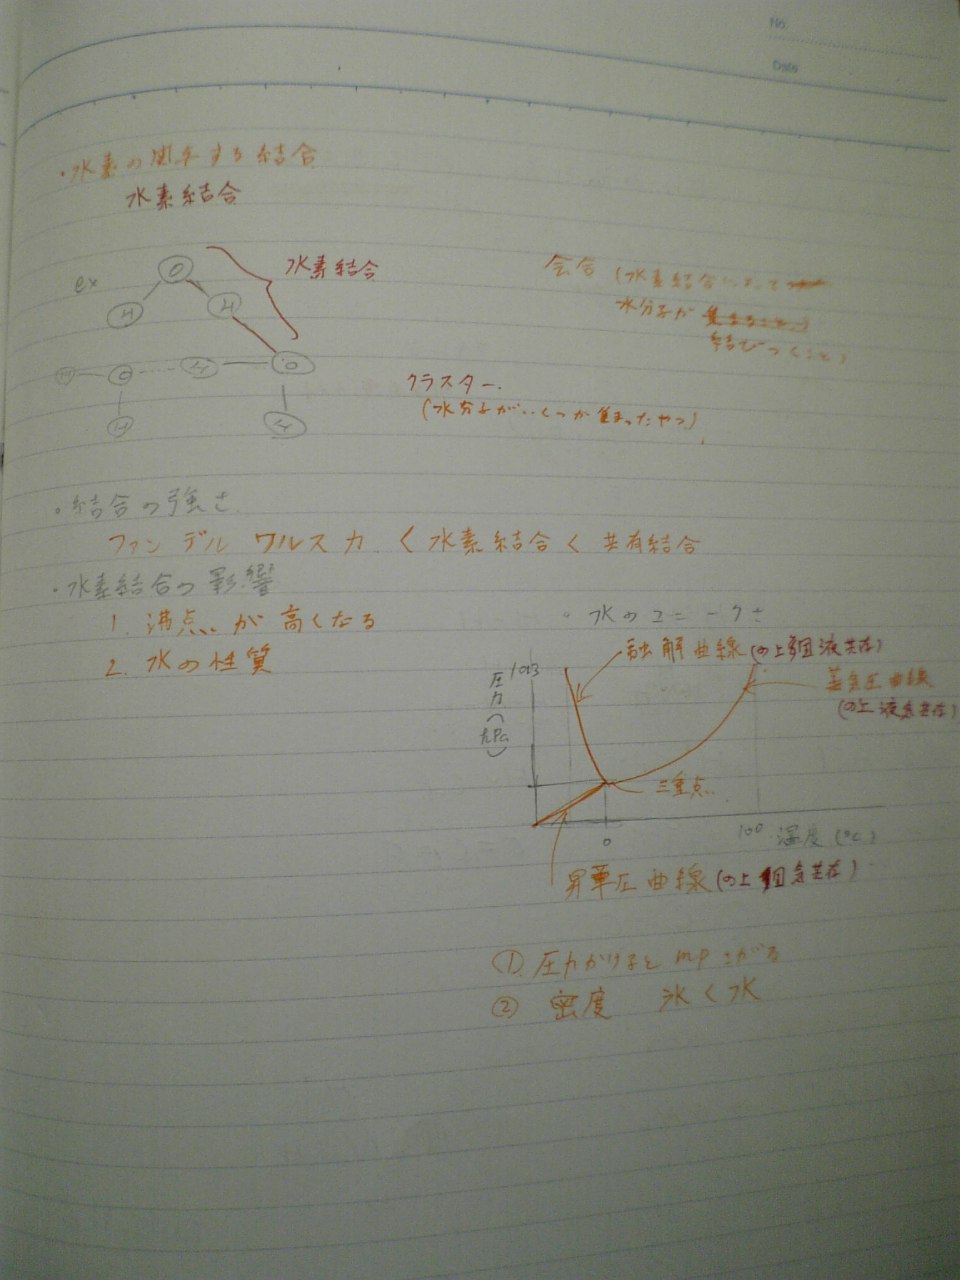 No.
Date
・水素の関係する結合
水素結合
ex
O
H
H
水素結合
H
O
H
O
H
H
会合 (水素結合によって
水分子が 集まること)
結びつくこと)
クラスター.
(水分子がいくつか集まったやつ)
・結合の強さ
ファンデルワルス力 < 水素結合 < 共有結合
・水素結合の影響
1. 沸点が高くなる
2. 水の性質
。水のユニークさ
融解曲線(の上 固液共存)
1013
圧力(hPa)
蒸気圧曲線
(の上 液気共存)
三重点
0
100
温度(℃)
昇華圧曲線(の上 固気共存)
① 圧力かけると mp さがる
② 密度 氷 < 水